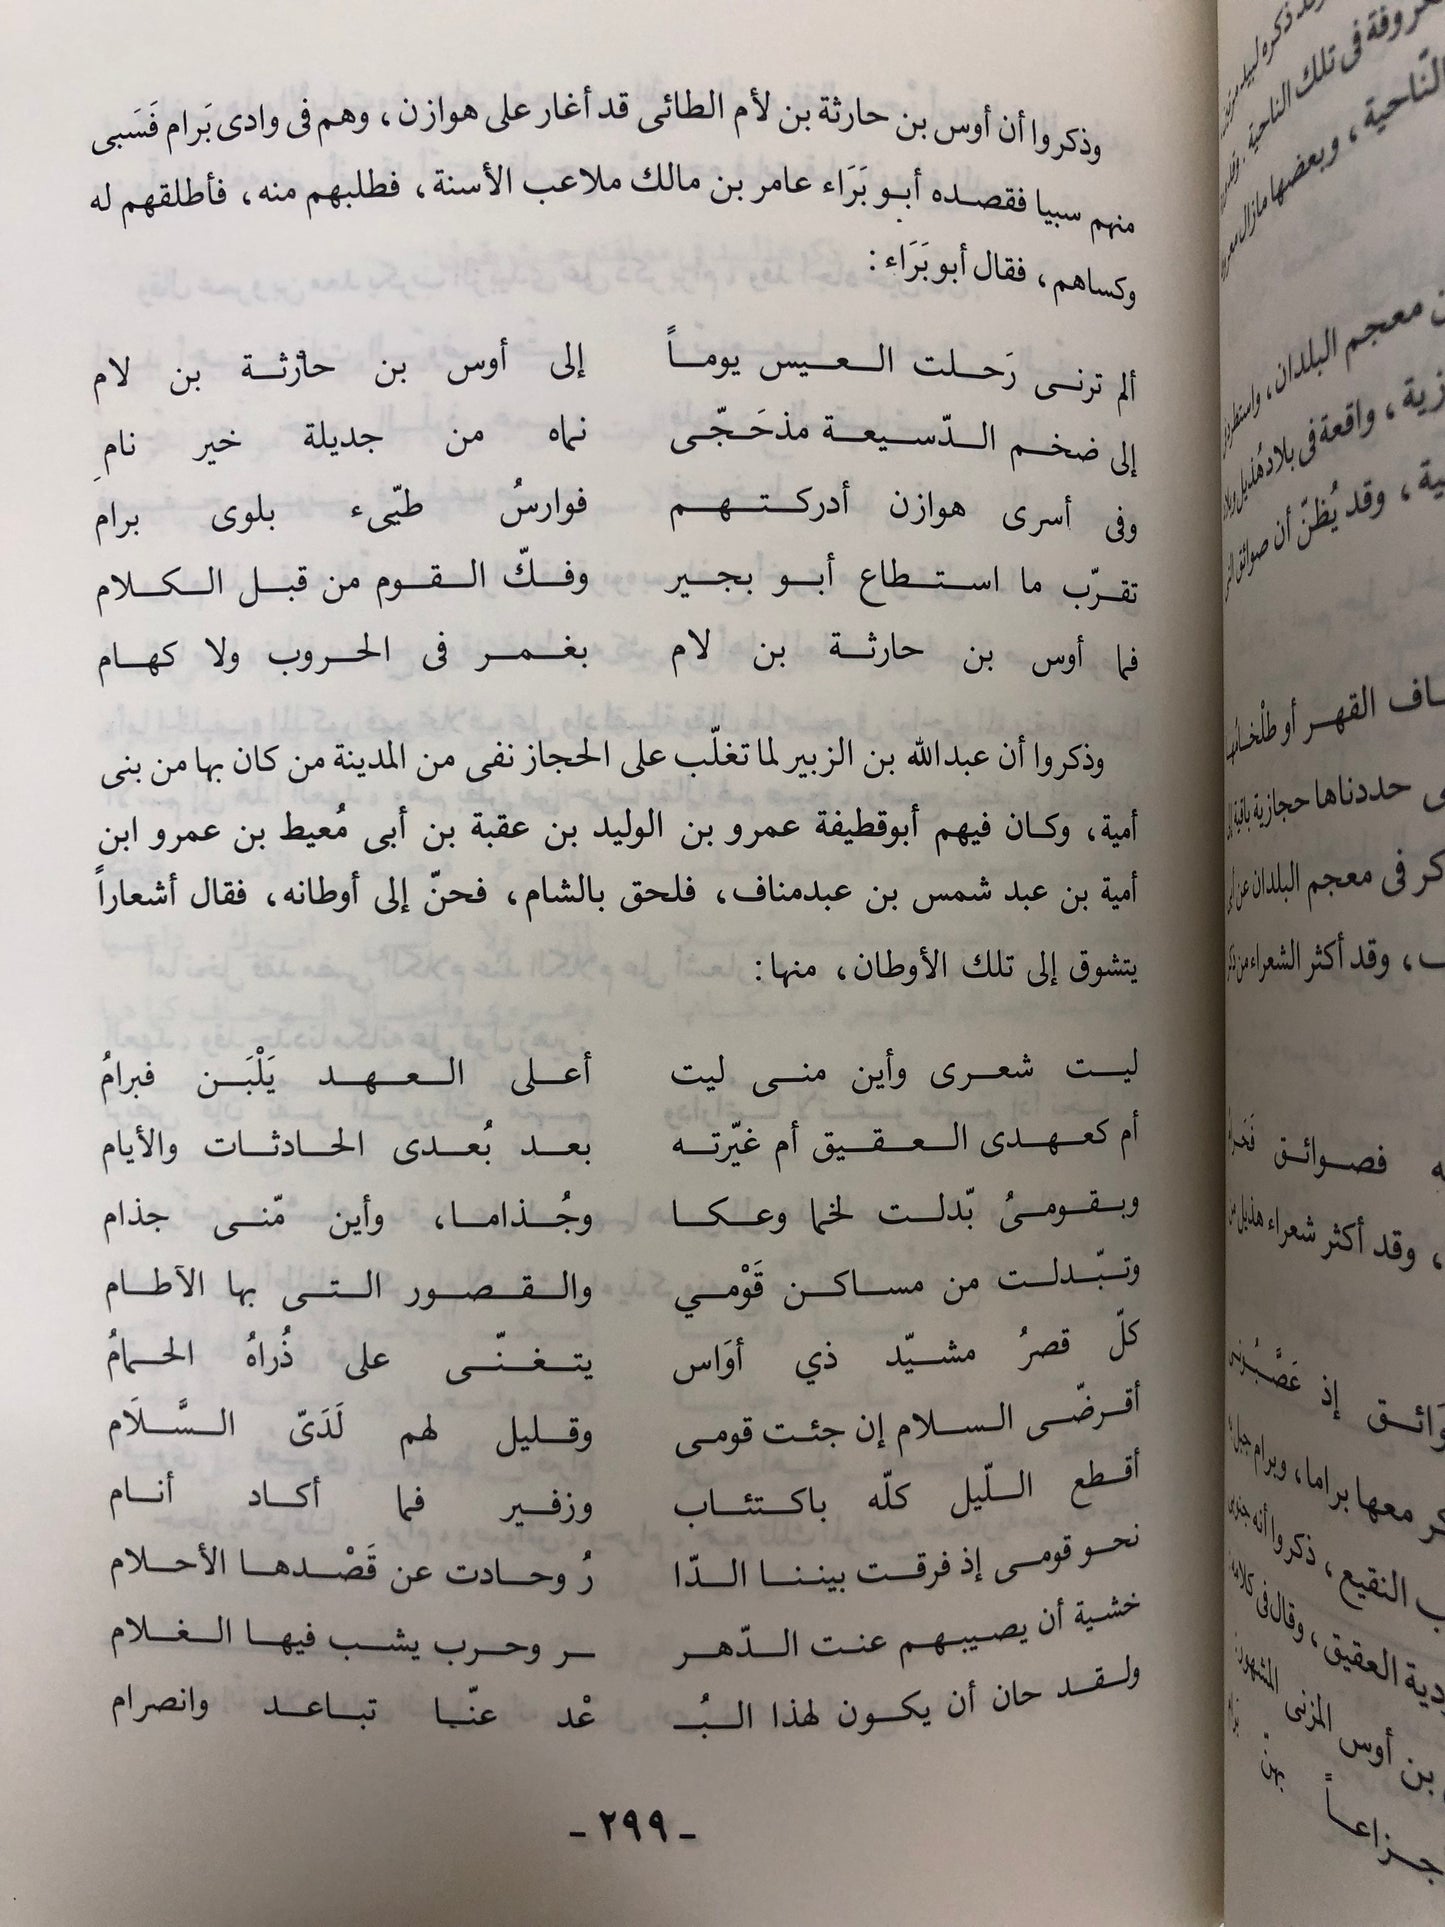 وذكروا أن أوس بن حارثة بن لأم الطائى قد أغار على هوازن، وهم فى وادى بَرام فَسَبى
منهم سبيا فقصده أبو بَرَاء عامر بن مالك ملاعب الأسنة، فطلبهم منه، فأطلقهم له
وكساهم، فقال أبو بَرَاء:
ألم ترنى رَحلت العيس يوماً إلى أوس بن حارثة بن لام
إلى ضخم الدّسيعة مذحَجّى نماه من جديلة خير نامِ
وفى أسرى هوازن أدركتهم فوارسُ طيّىء بلوى برام
تقرّب ما استطاع أبو بجير وفكّ القوم من قبل الكلام
فما أوس بن حارثة بن لام بغمر فى الحروب ولا كهام
وذكروا أن عبدالله بن الزبير لما تغلّب على الحجاز نفى من المدينة من كان بها من بنى
أمية، وكان فيهم أبوقطيفة عمرو بن الوليد بن عقبة بن أبى مُعيط بن عمرو ابن
أمية بن عبد شمس بن عبدمناف، فلحق بالشام، فحنّ إلى أوطانه، فقال أشعاراً
يتشوق إلى تلك الأوطان، منها:
ليت شعرى وأين منى ليت أعلى العهد يَلْبَن فبرامُ
أم كعهدى العقيق أم غيّرته بعد بُعدى الحادثات والأيام
وبقومىُ بّدلت لخما وعكا وجُذاما، وأين مّنى جذام
وتبّدلت من مساكن قَوْمي والقصور التى بها الآطام
كلّ قصرُ مشيّد ذي أوَاس يتغنّى على ذُراهُ الحمامُ
أقرضّى السلام إن جئت قومى وقليل لهم لَدَىّ السَّلَام
أقطع اللّيل كلّه باكتئاب وزفير فما أكاد أنام
نحو قومى إذ فرقت بيننا الدّا رُ وحادت عن قَصْدها الأحلام
خشية أن يصيبهم عنت الدّهر ـر وحرب يشب فيها الغلام
ولقد حان أن يكون لهذا البُـ عْد عنّا تباعد وانصرام
- ٢٩٩ -